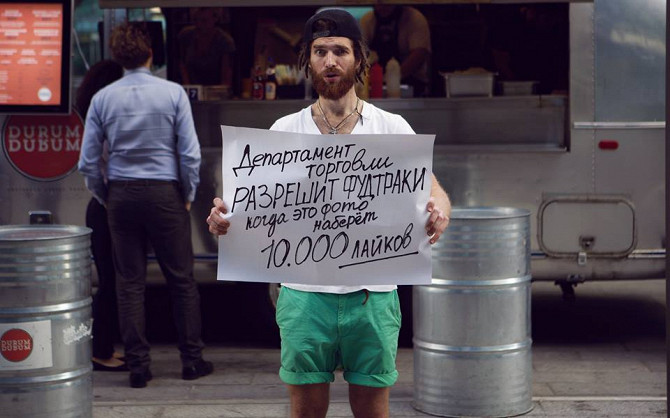 DURUM
DURUM
Департамент
торговли
РАЗРЕШИТ ФУДТРАКИ
когда это фото
наберёт
10.000 лайков
DURUM
DURUM